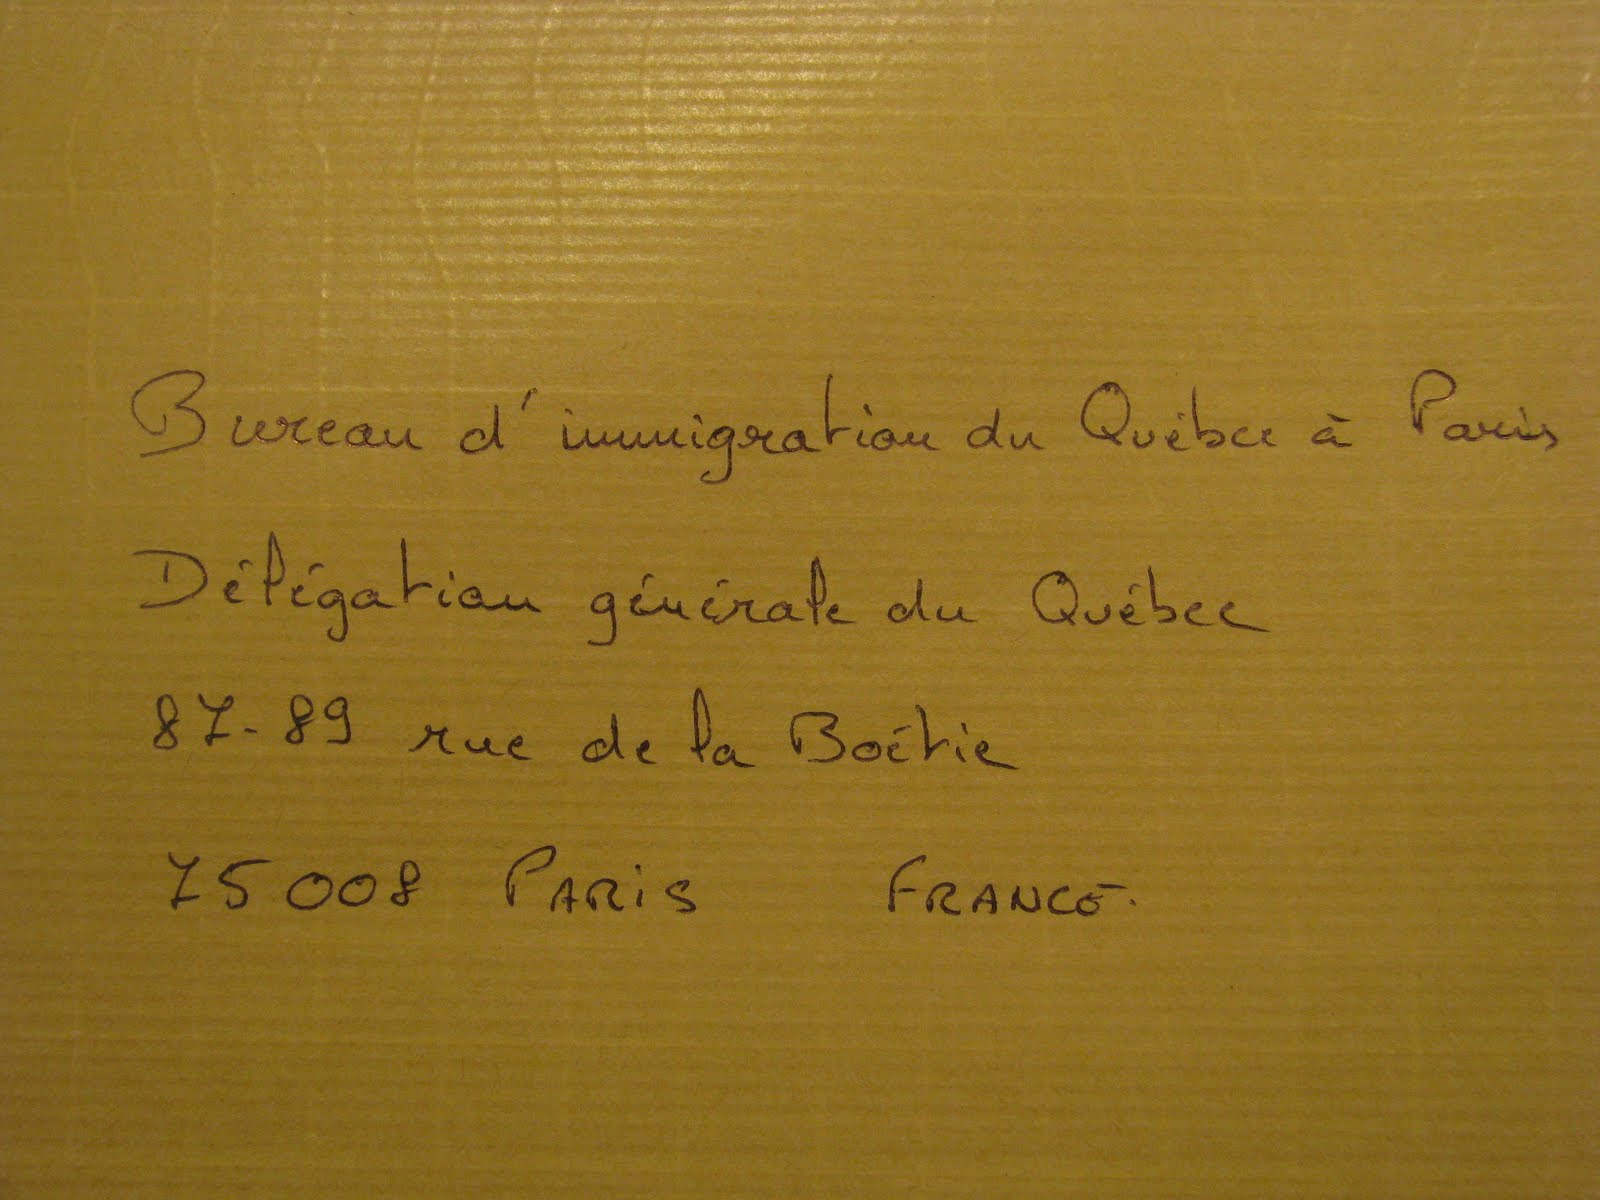 Bureau d'immigration du Québec à Paris
Délégation générale du Québec
87-89 rue de la Boétie
75008 PARiS FRANCE.